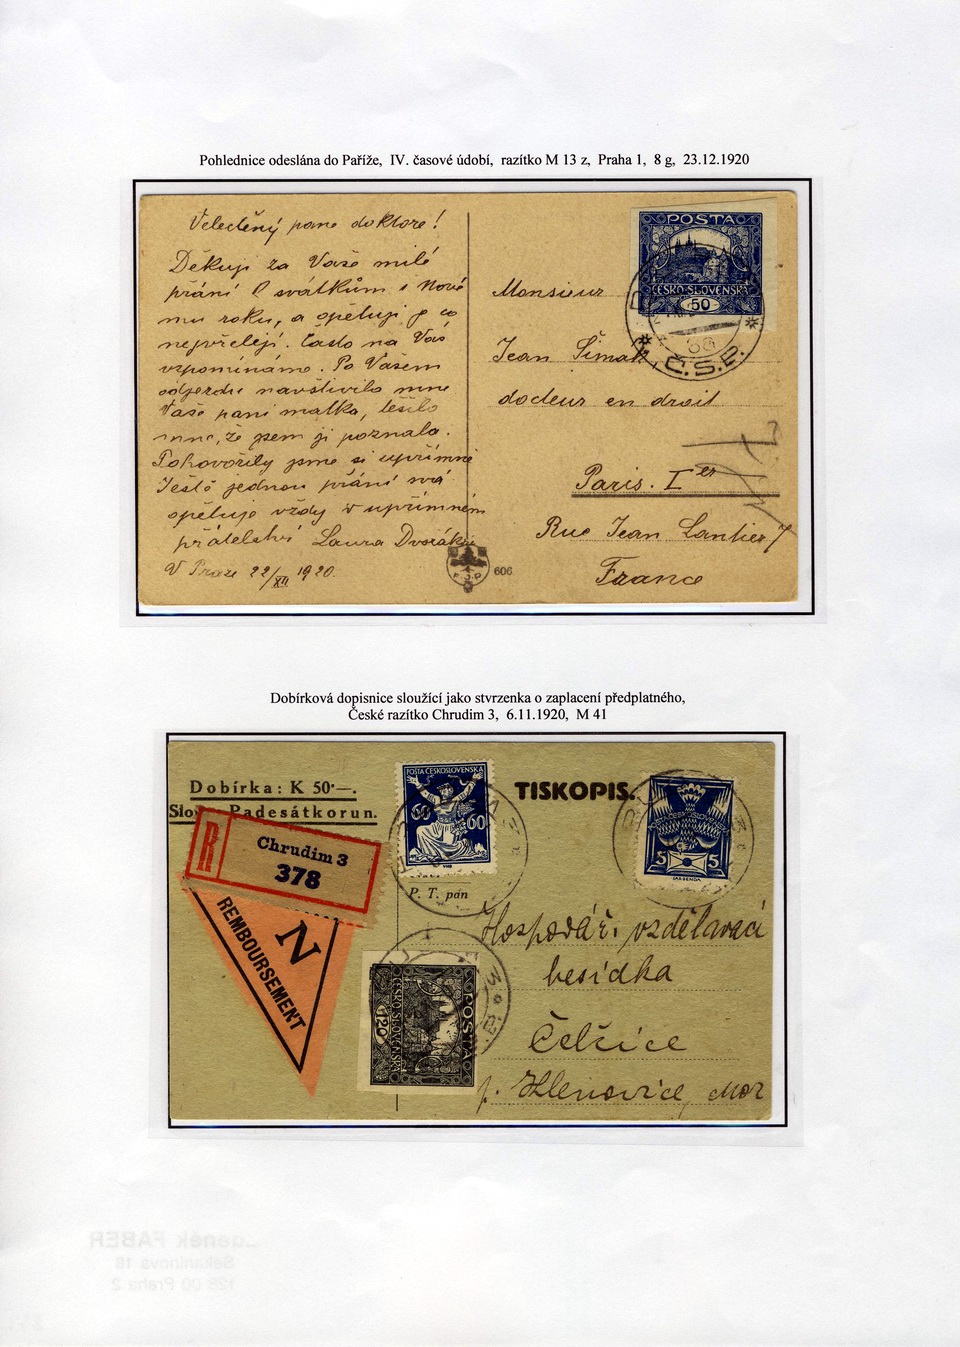 Pohlednice odeslána do Paříže, IV. časové údobí, razítko M 13 z, Praha 1, 8 g, 23.12.1920
Velectěný pane doktore!
Děkuji za Vaše milé
přání k svátkům a Nové
mu roku, a opětuji je co
nejvřeleji. Často na Vás
vzpomínáme. Po Vašem
odjezdu navštívila mne
Vaše paní matka, těšilo
mne, že jsem ji poznala.
Pohovořily jsme si upřímně
Ještě jednou přání svá
opětuje vždy v upřímném
přátelství Laura Dvořák
V Praze 22/XII 1920.
POSTA
ČESKO-SLOVENSKÁ
50
Č.S.P.
Monsieur
Jean Šimák,
docteur en droit
Paris. I er
Rue Jean Lantier 7
France
F.J.P.
606
Dobírková dopisnice sloužící jako stvrzenka o zaplacení předplatného,
České razítko Chrudim 3, 6.11.1920, M 41
Dobírka: K 50·—.
Padesátkorun.
R
Chrudim 3
378
N
REMBOURSEMENT
POŠTA ČESKOSLOVENSKÁ
60 60
TISKOPIS.
5 5
P. T. pán
Hospodář. vzdělávací
besídka
Čelčice
p. Klenovice, Mor
POSTA
ČESKO-SLOVENSKÁ
120
Zdeněk FABER
Sekaninova 18
128 00 Praha 2